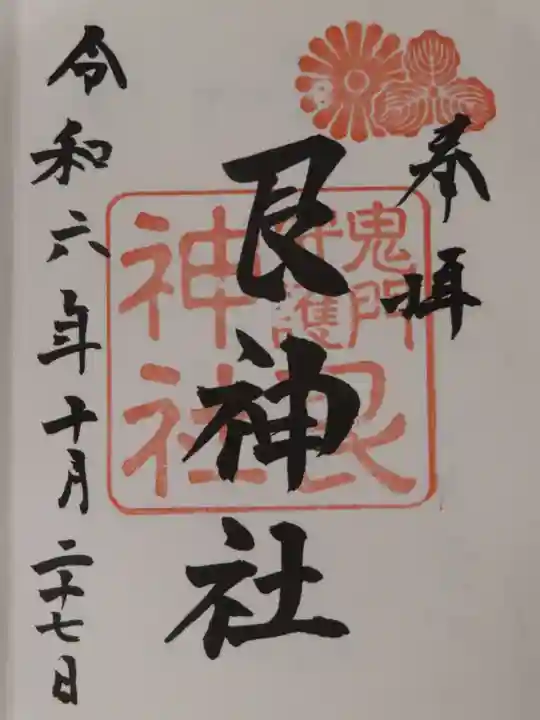 奉拝
艮神社
鬼門
守護
艮
神社
令和六年十月二十七日